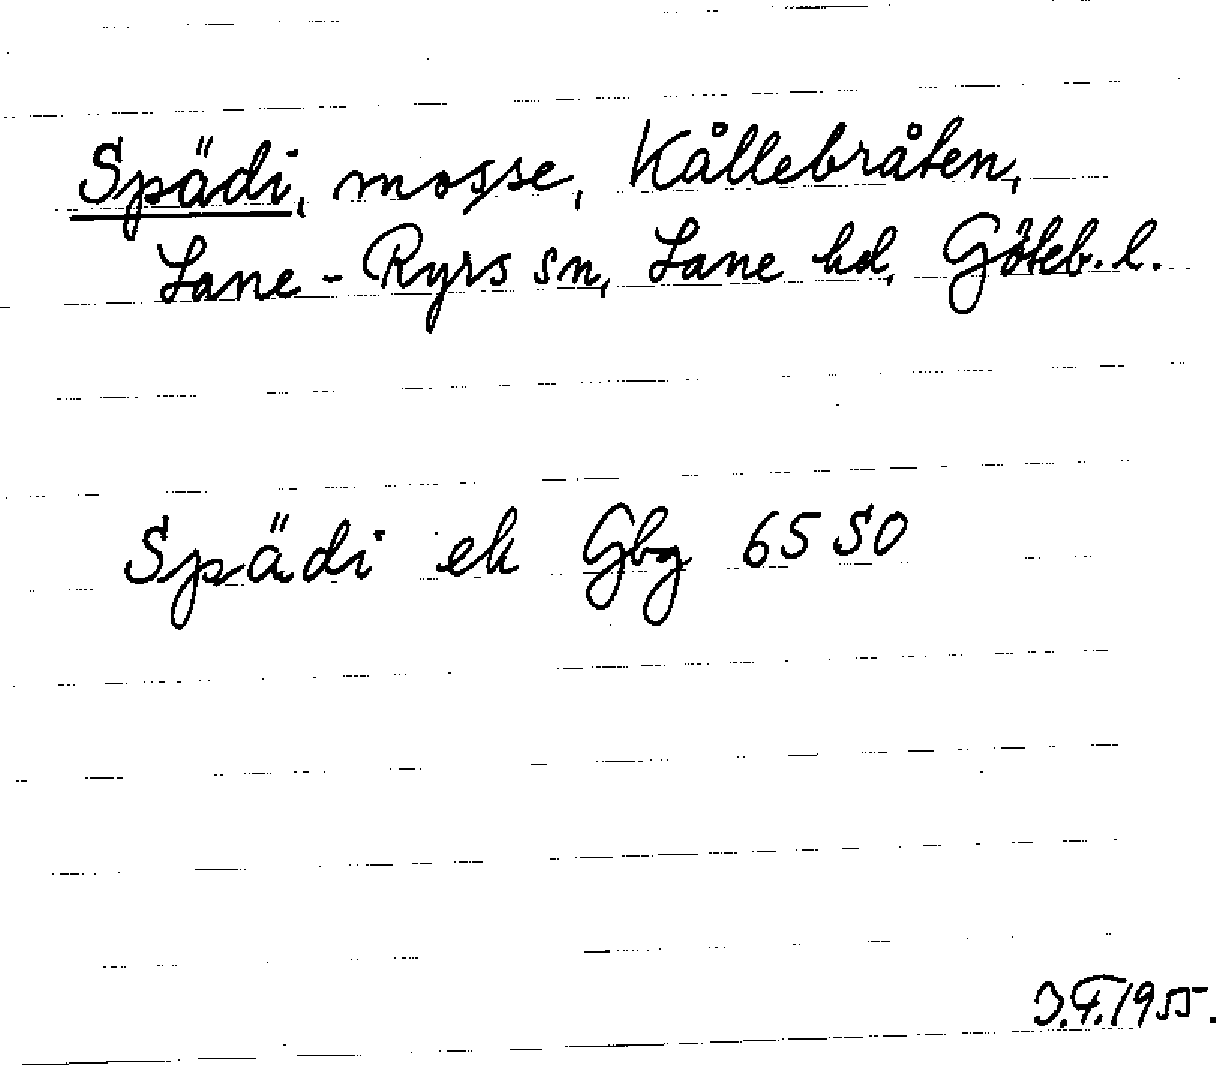 Spädi, mosse, Kållebråten,
Lane-Ryrs sn, Lane hd, Göteb. l.
Spädi ek Gbg 65 SO
J.F. 1955.